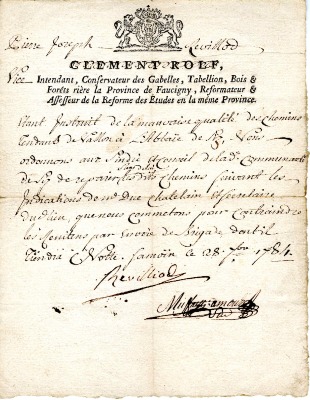 Pierre Joseph Revilliod
CLEMENT ROLF,
Vice Intendant, Conservateur des Gabelles, Tabellion, Bois &
Forêts riére la Province de Faucigny, Reformateur &
Assesseur de la Reforme des Études en la même Province.
Etant Instruit de la mauvaise qualité des chemins
tendant de Vallon a L'Abbaie de Six Nous
ordonnons aux Sindic et conseil de lad. Communauté
de Six de reparer les dits chemins suivant les
Indications de me Duc chatelain et secretaire
dud. lieu, que nous commetons pour Contraindre
les par Envoie de Brigade dont il
a Notte. le 28
Revilliod